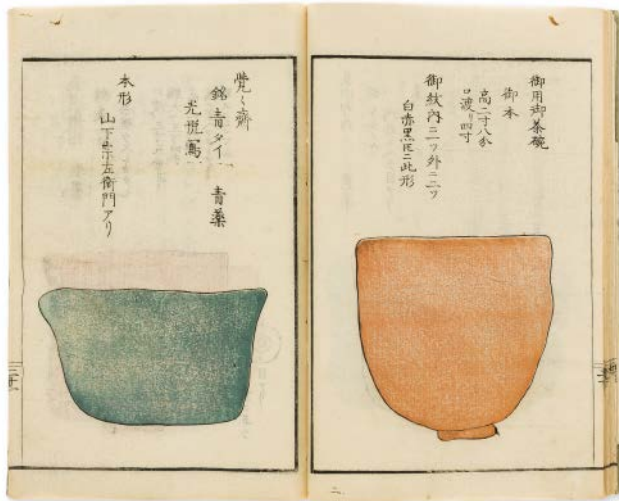 御用御茶碗
御本
高二寸八分
口渡リ四寸
御紋内ニ二ツ外ニ二ツ
白赤黒共ニ此形
覚々斎
銘青タイ 青薬
光悦写
本形
山下宗左衛門アリ